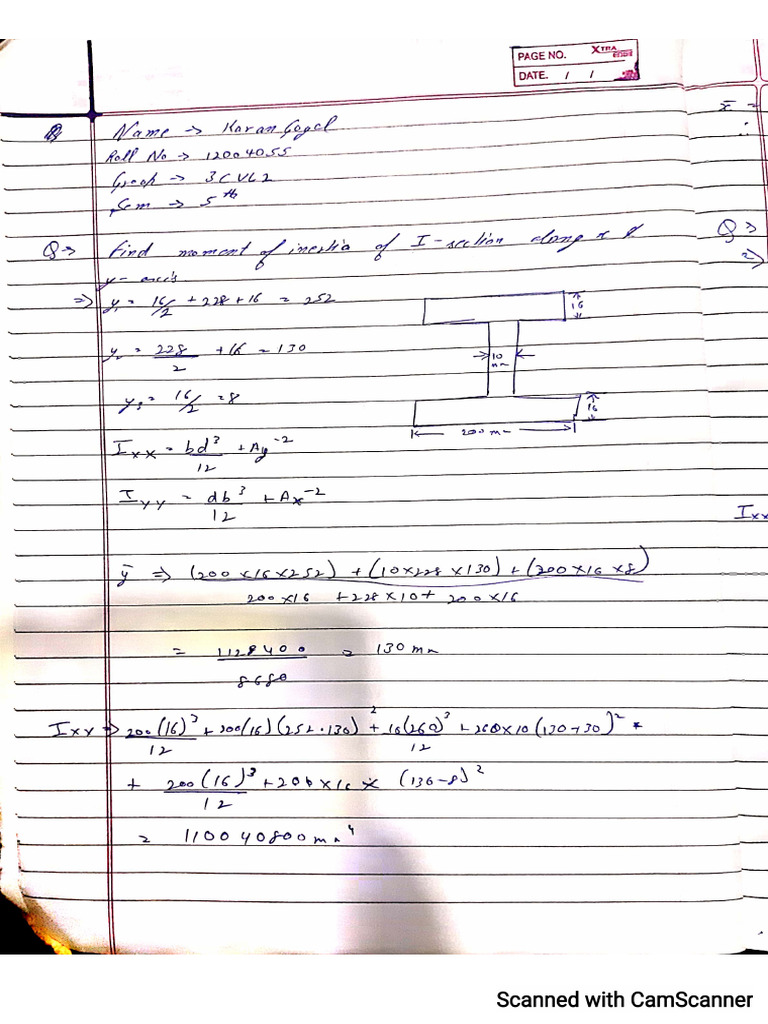 PAGE NO. XTRA
DATE. / /
Name → Karan Gogel
Roll No → 12004055
Group → 3CVL2
Sem → 5th
Q → Find moment of inertia of I-section along x &
y-axis
⇒ y₁ = 16/2 + 228 + 16 = 252
16
y₂ = 228/2 + 16 = 130
10 mm
y₃ = 16/2 = 8
16
200 mm
Ixx = bd³/12 + Ay⁻²
Iyy = db³/12 + Ax⁻²
ȳ ⇒ (200×16×252) + (10×228×130) + (200×16×8)
200×16 + 228×10 + 200×16
= 1128400/8680 = 130 mm
Ixx ⇒ 200(16)³/12 + 200(16)(252-130)² + 10(260)³/12 + 260×10(130-130)² +
+ 200(16)³/12 + 200×16 × (130-8)²
= 110040800 mm⁴
x̄ =
∴
Q ⇒
2)
Ixx
Scanned with CamScanner